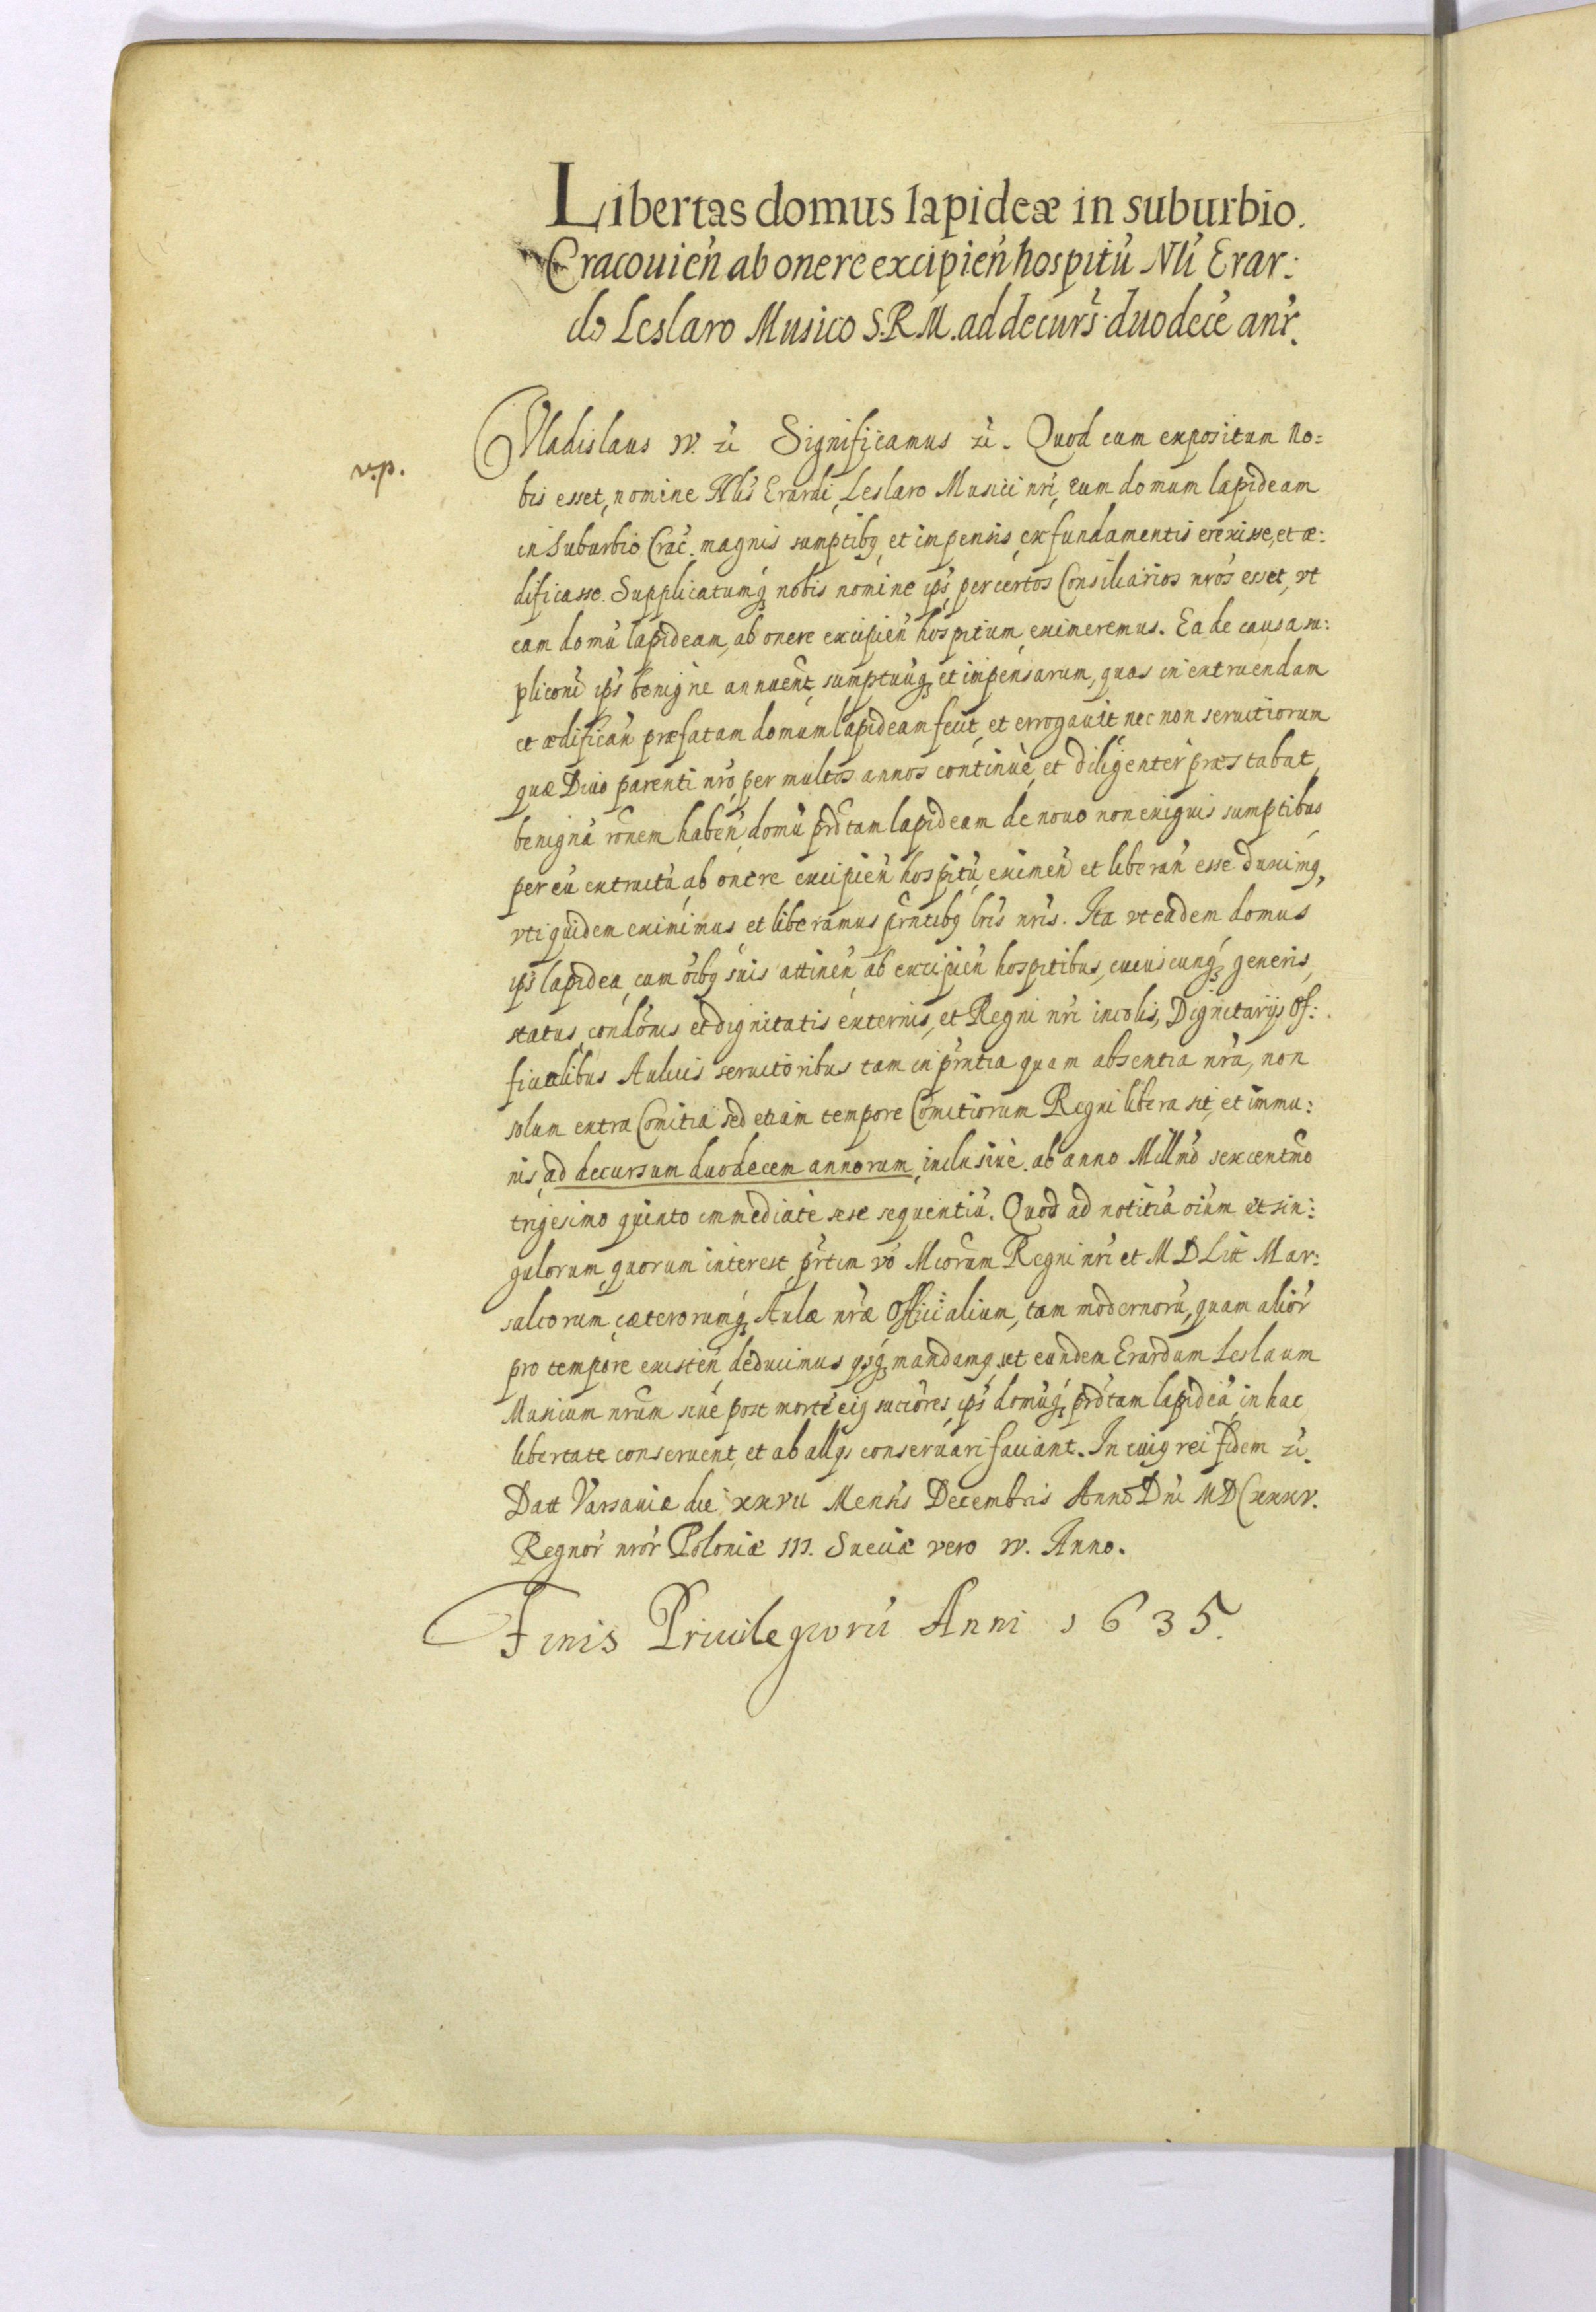 Libertas domus lapideæ in suburbio.
Cracouień ab onere excipień hospitū Nli Erar:
do Leslaro Musico S.R.M. ad decurs duodecē anr.
Vladislaus IV. zc Significamus zc. Quod cum expositum no:
v.p.
bis esset, nomine Nlis Erardi, Leslaro Musici nri, eum domum lapideam
in Suburbio Crac. magnis sumptibq et impensis ex fundamentis erexisse, et æ:
dificasse. Supplicatumq nobis nomine ips per certos Consiliarios nros esset, vt
eam domū lapideam, ab onere excipień hospitum, eximeremus. Ea de causa su:
pliconi ips benigne annuent, sumptuūq et inpensarum, quas in extruendam
et ædificań præfatam domum lapideam fecit, et errogauit nec non seruitiorum
quæ Diuo parenti nro, per multos annos continuè, et diligenter præstabat,
benignā ronem habeń, domū prdtam lapideam de nouo non exiguis sumptibus
per eū extructā, ab onere excipień hospitū, eximeń et liberań esse duximq,
vti quidem eximimus et liberamus prntibq lris nris. Ita vt eadem domus
ips lapidea, cum oibq suis attineń ab excipień hospitibus, cuiuscunq generis,
status, condonis et dignitatis externis, et Regni nri incolis, Dignitarijs Of:
ficialibus Aulicis seruitoribus tam in prntia quam absentia nra, non
solum extra Comitia sed etiam tempore Comitiorum Regni libera sit, et immu:
nis, ad decursum duodecem annorum, inclusiuè. ab anno Millmo sexcentmo
trigesimo quinto immediatè sese sequentiū. Quod ad notitiā oium et sin:
gulorum, quorum interest, prtim vo Mcorum Regni nri et M D Litt Mar:
salcorum, cæterorumq Aulæ nræ Officialium, tam modernorū, quam alior
pro tempore existeń, deducimus ysq mandamq. vt eundem Erardum Leslaum
Musicum nrum siue post mortē eiq succores, ips domūq prdtam lapideā, in hac
libertate conseruent, et ab alijs conseruari faciant. In cuiq rei fidem zc.
Datt Varsauiæ die xxvii Mensis Decembris Anno Dni MDCxxxv.
Regnor nror Poloniæ III. Sueciæ vero IV. Anno.
Finis Priuilegiorū Anni 1635.